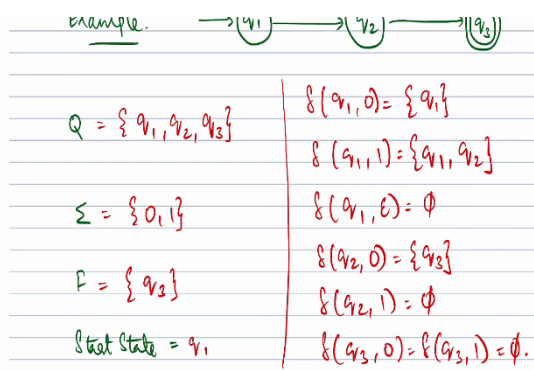 Example.
q₁ q₂ q₃
Q = { q₁, q₂, q₃}
Σ = {0,1}
F = { q₃}
Start State = q₁
δ(q₁,0) = {q₁}
δ(q₁,1) = {q₁, q₂}
δ(q₁,ε) = ϕ
δ(q₂,0) = {q₃}
δ(q₂,1) = ϕ
δ(q₃,0) = δ(q₃,1) = ϕ.